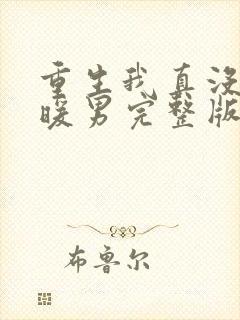 重生我真没
暖男完整版
布鲁尔